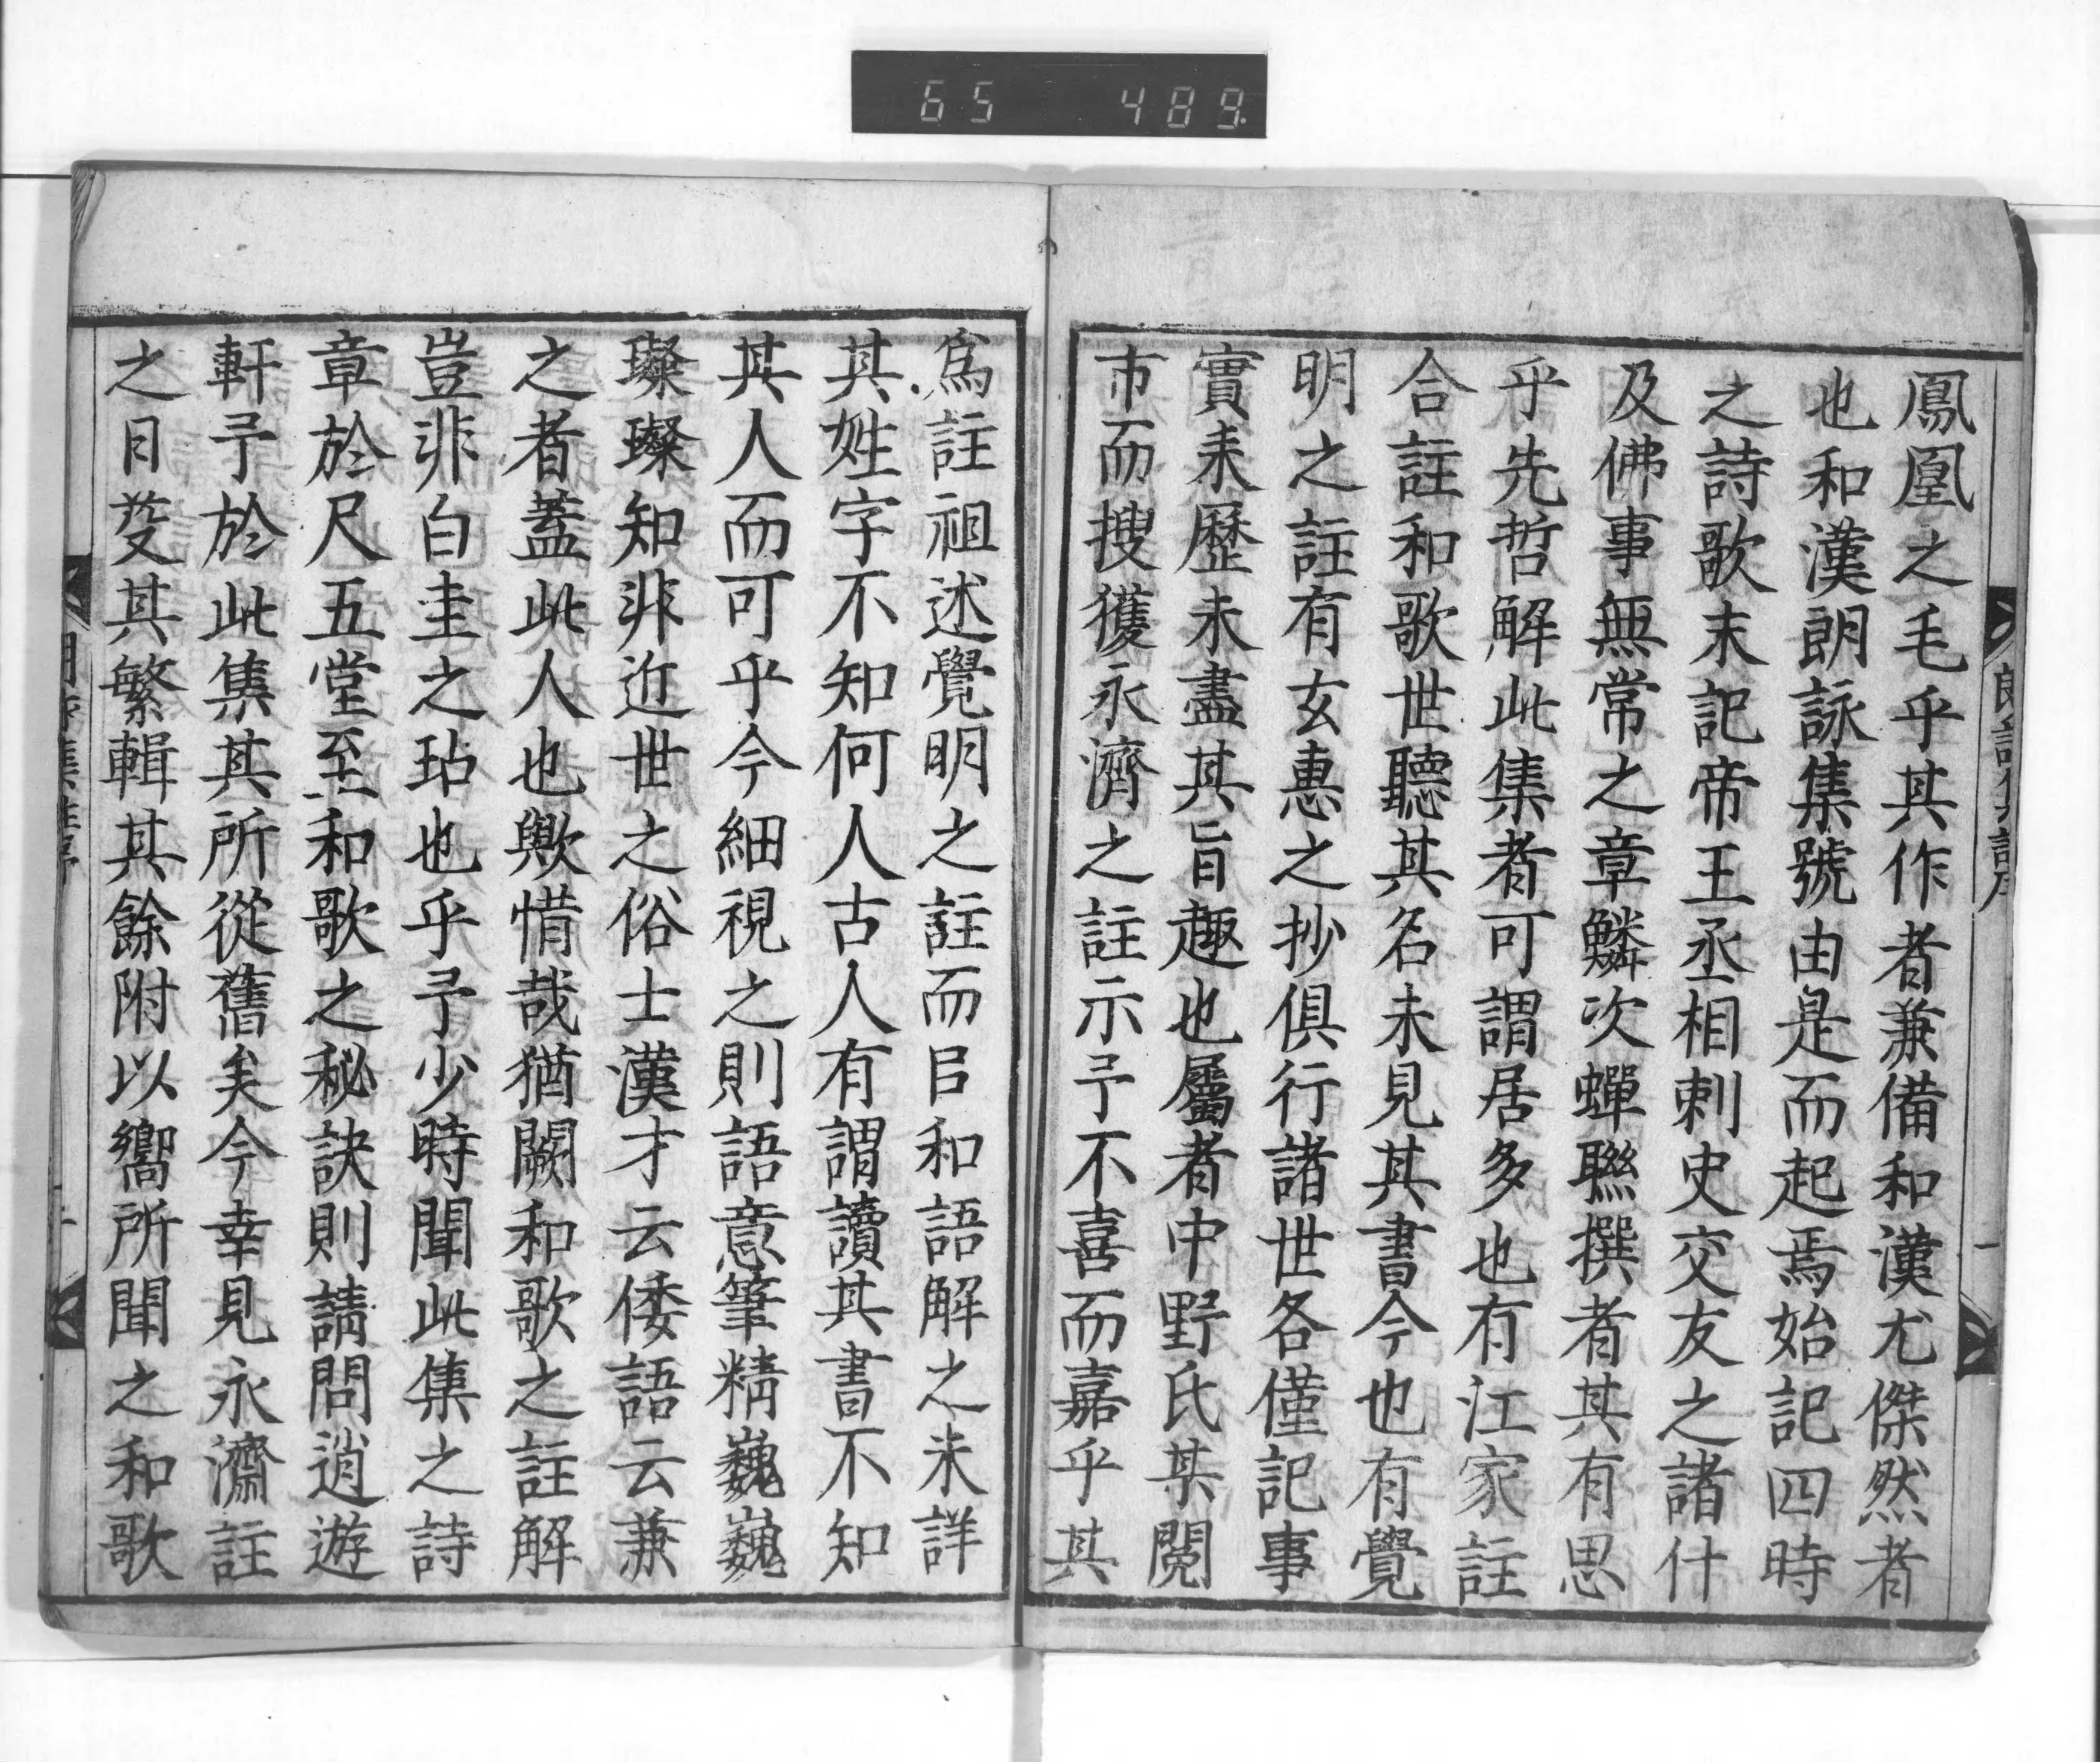 65 489
鳳凰之毛乎其作者兼備和漢尤傑然者
也和漢朗詠集號由是而起焉始記四時
之詩歌末記帝王丞相刺史交友之諸什
及佛事無常之章鱗次蟬聯撰者其有思
乎先哲解此集者可謂居多也有江家註
合註和歌世聽其名未見其書今也有覺
明之註有玄惠之抄俱行諸世各僅記事
實来歷未盡其旨趣也屬者中野氏某閱
市而搜獲永濟之註示予不喜而嘉乎其
為註祖述覺明之註而㠯和語解之未詳
其姓字不知何人古人有謂讀其書不知
其人而可乎今細視之則語意筆精巍巍
璨璨知非近世之俗士漢才云倭語云兼
之者蓋此人也歟惜哉猶闕和歌之註解
豈非白圭之玷也乎予少時聞此集之詩
章於尺五堂至和歌之秘訣則請問逍遊
軒予於此集其所從舊矣今幸見永濟註
之日芟其繁輯其餘附以嚮所聞之和歌